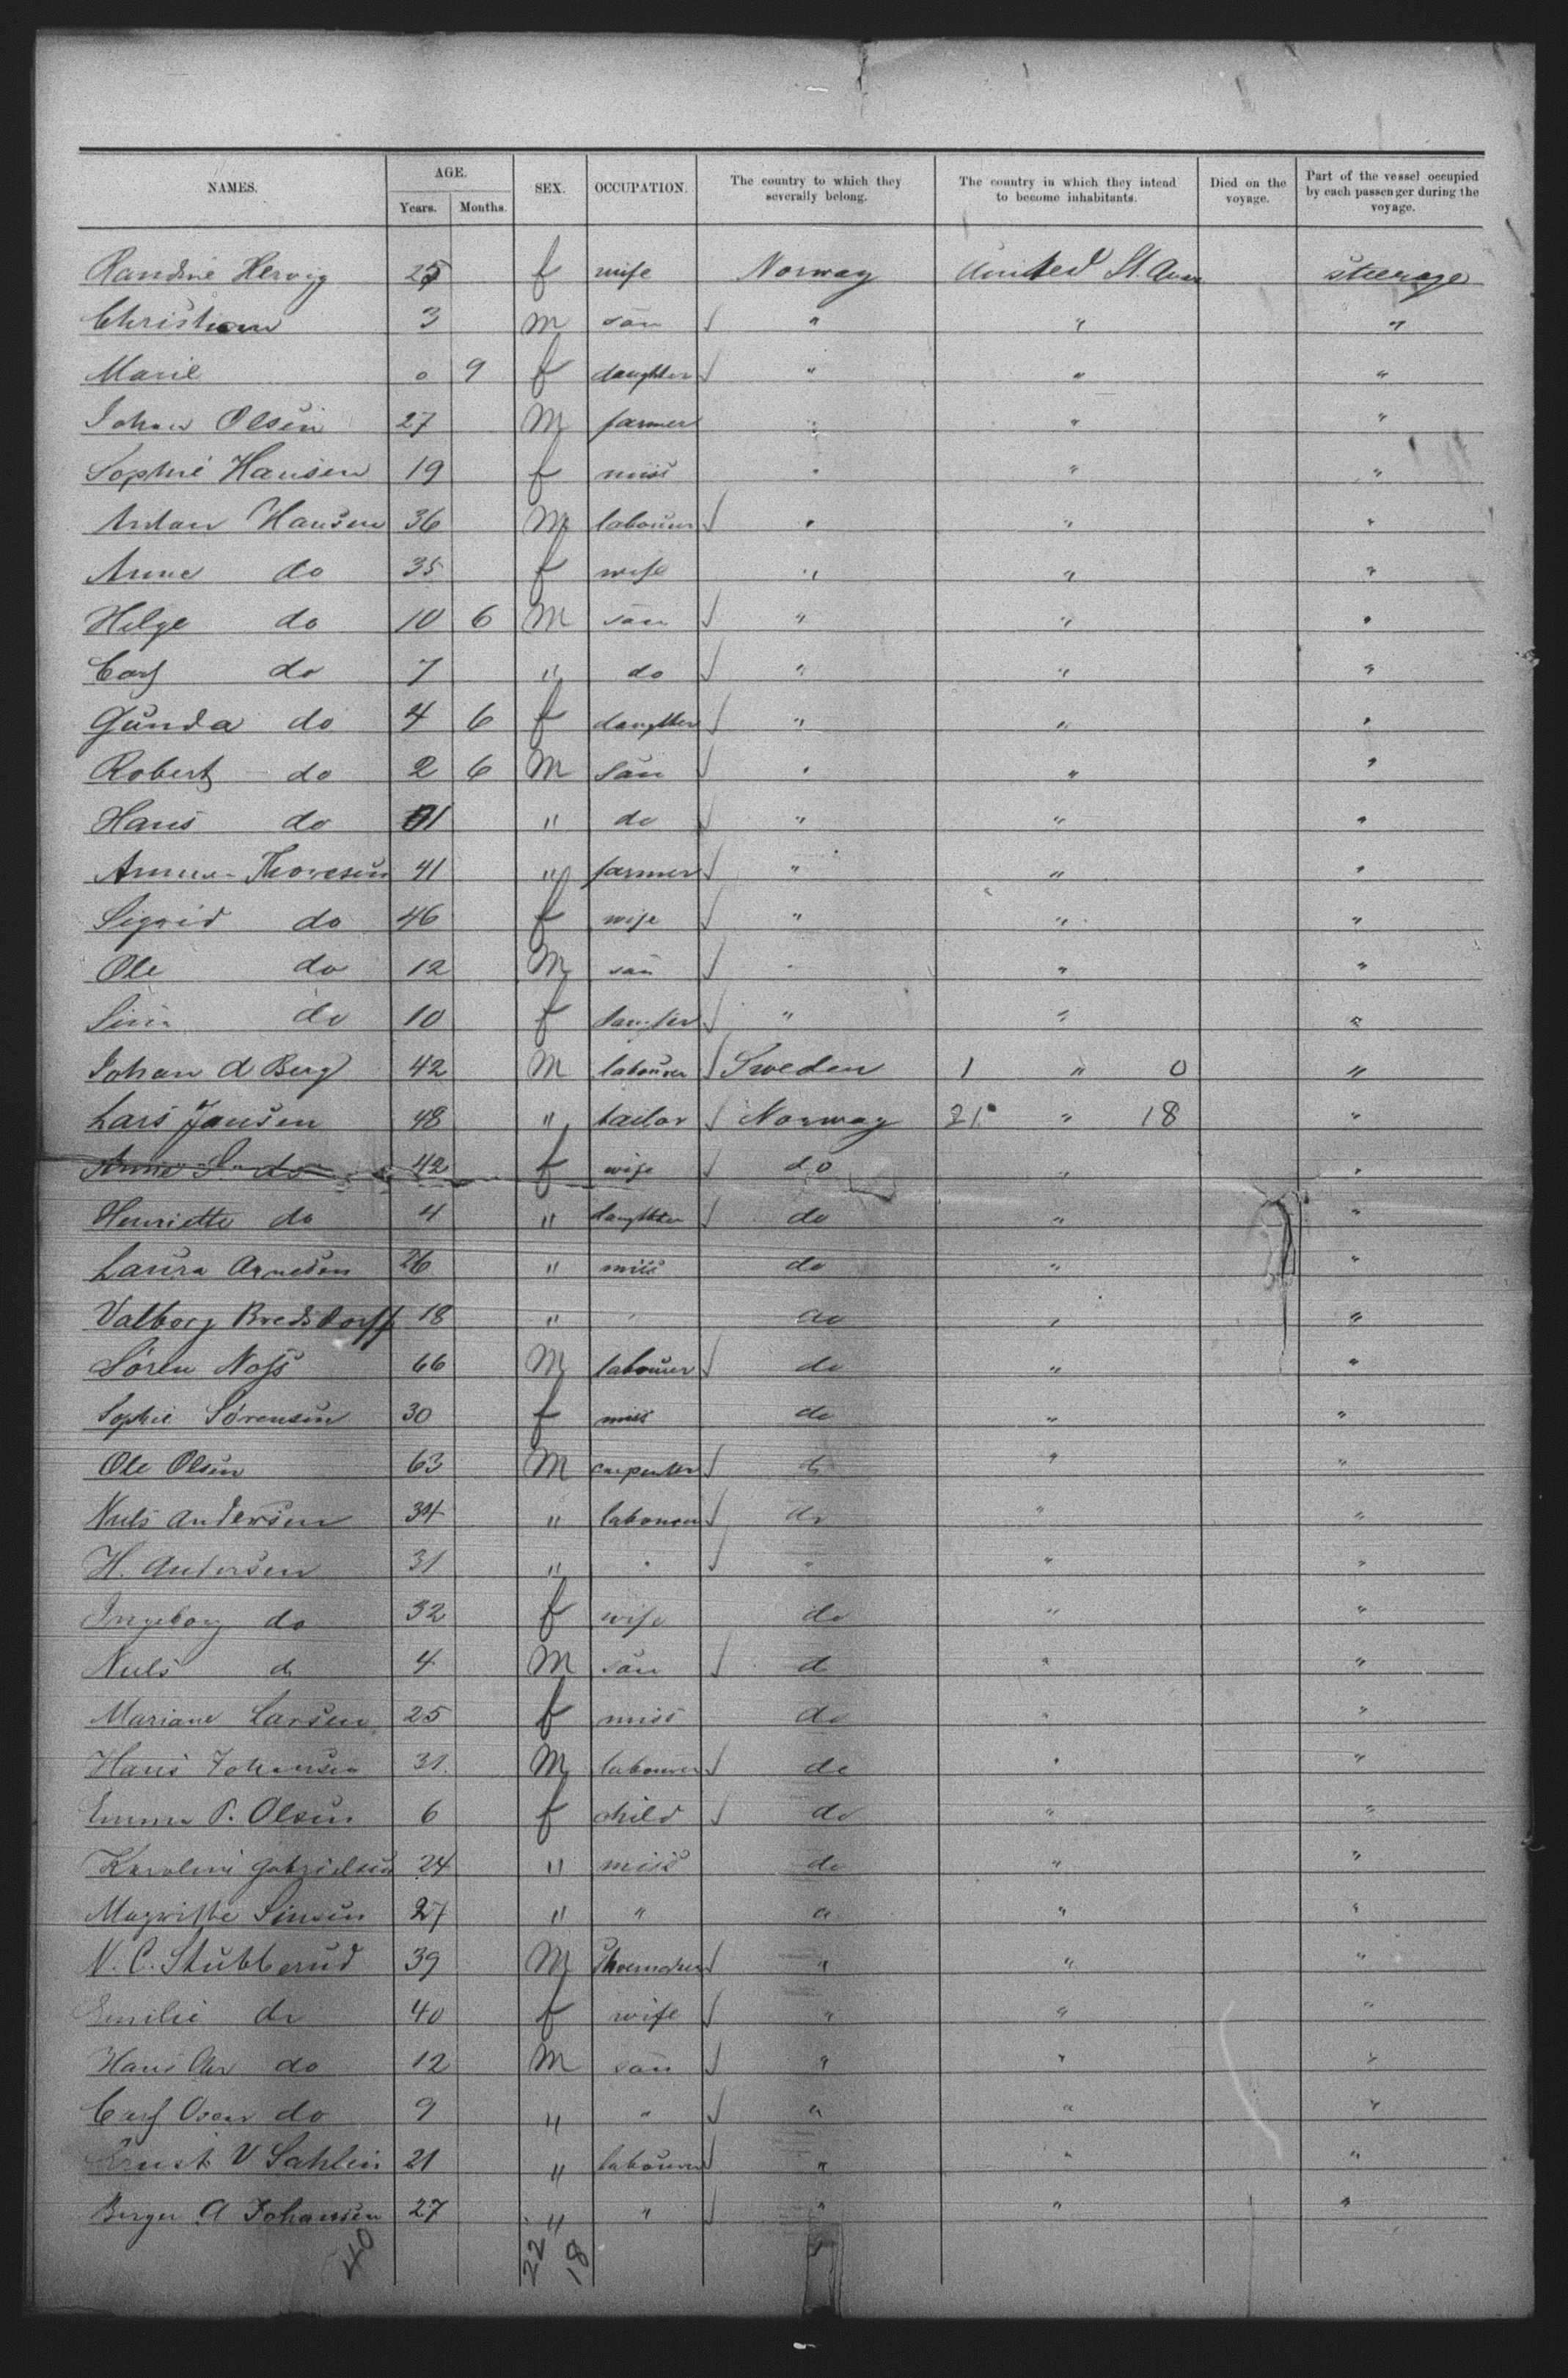 NAMES. AGE. Years. Months. SEX. OCCUPATION. The country to which they severally belong. The country in which they intend to become inhabitants. Died on the voyage. Part of the vessel occupied by each passenger during the voyage.
Randine Hervig 25 f wife Norway United St. Am steerage
Christian 3 M son √ " " "
Marie 0 9 f daughter √ " " "
Johan Olsen 27 M farmer " " "
Sophie Hansen 19 f miss " " "
Anton Hansen 36 M labourer √ " " "
Anne do 35 f wife " " "
Helge do 10 6 M son √ " " "
Carl do 7 " do √ " " "
Gunda do 4 6 f daugther √ " " "
Robert do 2 6 M son √ " " "
Hans do 1 " do √ " " "
Thoresen 41 " farmer √ " " "
Sigrid do 46 f wife √ " " "
Ole do 12 M son √ " " "
do 10 f √ " " "
Johan A Berg 42 M labourer √ Sweden 1 " 0 "
Lars Jansen 48 " tailor √ Norway 21 " 18 "
Anne S. do 42 f wife √ do " "
Henriette do 4 " daugther √ do " "
Laura Arnesen 26 " miss do " "
Valborg Bredsdorff 18 " " do " "
Søren Noss 66 M labourer √ do " "
Sophie Sørensen 30 f miss do " "
Ole Olsen 63 M carpenter √ do " "
Niels Andersen 34 " labourer √ do " "
H. Andersen 31 " " √ " " "
Ingeborg do 32 f wife do " "
Niels do 4 M son √ do " "
Mariane Larsen 25 f miss do " "
Hans Johansen 31 M labourer √ do " "
Emma P. Olsen 6 f child √ do " "
Karoline Gabrielsen 24 " miss do " "
Magrithe 27 " " " "
N. C. Stubberud 39 M √ " " "
Emilie do 40 f wife √ " " "
Hans Chr do 12 M son √ " " "
Carl Oscar do 9 " " √ " " "
Ernst V Sahlin 21 " labourer √ " " "
Berger A Johansen 27 " " √ " " "
40 22 18